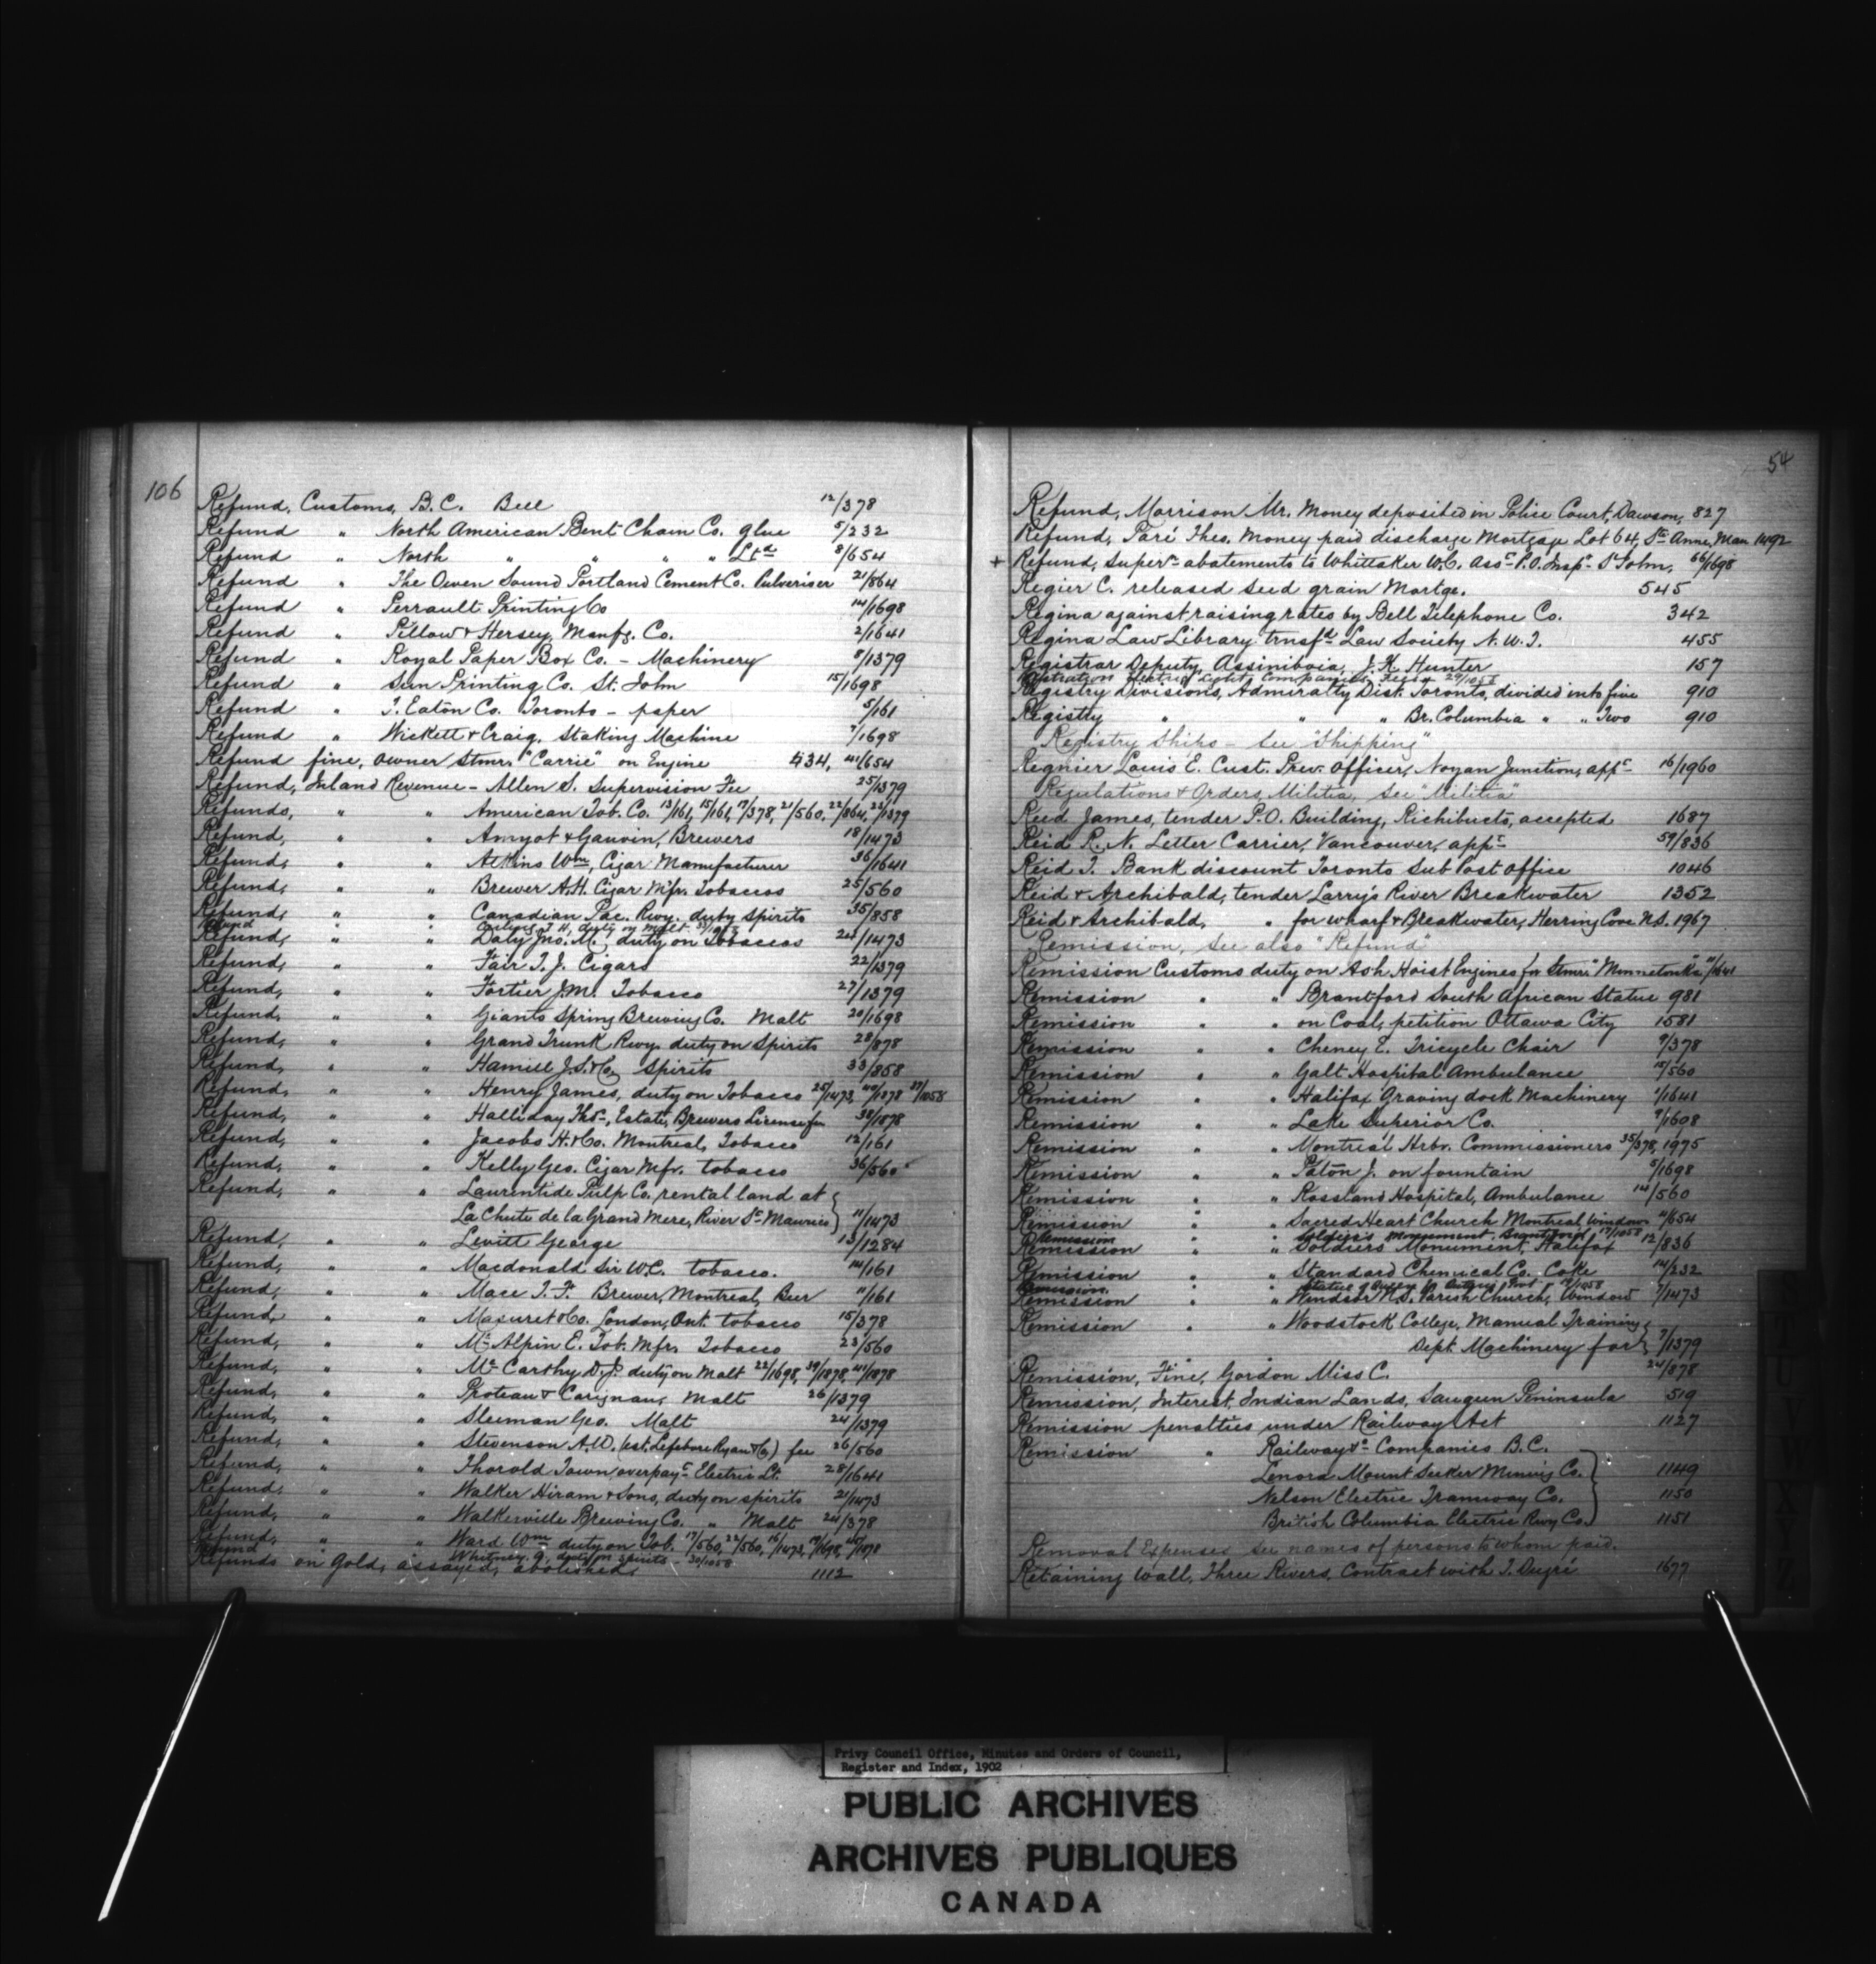 106
Refund, Customs, B.C. Bell 12/378
Refund " North American Bent Chain Co. glue 5/232
Refund " North " " " Ltd 8/654
Refund " The Owen Sound Portland Cement Co. Pulveriser 21/864
Refund " Perrault Printing Co 14/1698
Refund " Pillow & Hersey Manfg. Co. 2/1641
Refund " Royal Paper Box Co. - Machinery 8/1379
Refund " Sun Printing Co. St. John 15/1698
Refund " T. Eaton Co. Toronto - paper 5/161
Refund " Wickett & Craig, Staking Machine 7/1698
Refund fine, owner Stmr. "Carrie" on Engine 434, 41/654
Refund, Inland Revenue - Allen S. Supervision Fee 25/1379
Refunds, " " American Tob. Co. 13/161, 15/161, 17/378, 21/560, 22/864, 23/1379
Refund, " " Amyot & Gauvin, Brewers 18/1473
Refund, " " Atkins Wm, Cigar Manufacturer 36/1641
Refund, " " Brewer A.H. Cigar Mfr. Tobaccos 25/560
Refund, " " Canadian Pac. Rwy. duty Spirits 35/858
Refund " " Carling T H, duty on Malt
Refund, " " Daly Jno. M., duty on Tobaccos 24/1473
Refund, " " Fair T. J. Cigars 22/1379
Refund, " " Fortier J.M. Tobacco 27/1379
Refund, " " Giants Spring Brewing Co. Malt 20/1698
Refund, " " Grand Trunk Rwy. duty on Spirits 28/878
Refund, " " Hamill J.S. & Co. Spirits 33/858
Refund, " " Henry James, duty on Tobacco 25/1473, 40/1878 27/1058
Refund, " " Halliday Thos, Estate, Brewers License fee 38/1878
Refund, " " Jacobs H. & Co. Montreal, Tobacco 12/161
Refund, " " Kelly Geo. Cigar Mfr. tobacco 36/560
Refund, " " Laurentide Pulp Co. rental land at
La Chute de la Grand Mere, River St Maurice } 11/1473
Refund, " " Levitt George 13/1284
Refund, " " Macdonald Sir W.C. tobacco. 14/161
Refund, " " Mace T. F. Brewer, Montreal, Beer 11/161
Refund, " " Masuret & Co. London, Ont. tobacco 15/378
Refund, " " Mc Alpin E. Tob. Mfr. Tobacco 23/560
Refund, " " Mc Carthy D.J. duty on Malt 22/1698, 39/1878, 41/1878
Refund, " " Proteau & Carignan, Malt 26/1379
Refund, " " Sleeman Geo. Malt 24/1379
Refund, " " Stevenson A.W. (est. Lefebvre Ryan & Co) fee 26/560
Refund, " " Thorold Town overpayt Electric Lt. 28/1641
Refund, " " Walker Hiram & Sons, duty on spirits 21/1473
Refund, " " Walkerville Brewing Co. " Malt 24/378
Refund, " " Ward Wm duty on Tob. 17/560, 22/560, 16/1473, 19/1698, 45/1878
Refund " " Whitney G. duty on spirits - 30/1058
Refunds on Gold, assayed, abolished, 1112
54
Refund, Morrison Mr. Money deposited in Police Court, Dawson, 827
Refund, Paré Theo. Money paid discharge Mortgage Lot 64, Ste Anne, Man 1492
+ Refund, Supern abatements to Whittaker W.C. Asst P.O. Inspr St John, 66/1698
Regier C. released seed grain Mortge. 545
Regina against raising rates by Bell Telephone Co. 342
Regina Law Library trnsfd Law Society N.W.T. 455
Registrar Deputy, Assiniboia, J.K. Hunter 157
Registration Electric Light Companies Fees 29/1058
Registry Divisions, Admiralty Dist. Toronto, divided into five 910
Registry " " " Br. Columbia " " Two 910
Registry Ships - See "Shipping"
Regnier Louis E. Cust. Prev. Officer, Noyan Junction, appt 16/1960
Regulations & Orders, Militia, see "Militia"
Reid James, tender P.O. Building, Richibucto, accepted 1687
Reid R. N. Letter Carrier, Vancouver, appt 59/836
Reid T. Bank discount Toronto Sub Post Office 1046
Reid & Archibald, tender Larry's River Breakwater 1352
Reid & Archibald, " for wharf & Breakwater, Herring Cove N.S. 1967
Remission, See also "Refund"
Remission Customs duty on Ash Hoist Engines for Stmr. "Minnetonka" 11/1641
Remission " " Brantford South African Statue 981
Remission " " on Coal, petition Ottawa City 1581
Remission " " Cheney E. Tricycle Chair 9/378
Remission " " Galt Hospital Ambulance 15/560
Remission " " Halifax Graving dock Machinery 1/1641
Remission " " Lake Superior Co. 9/1608
Remission " " Montreal Hrbr. Commissioners 35/378, 1975
Remission " " Paton J. on fountain 5/1698
Remission " " Rossland Hospital, Ambulance 14/560
Remission " " Sacred Heart Church Montreal, Window 11/654
Remission " " Soldiers Monument, Brantford 17/1058
Remission " " Soldiers Monument, Halifax 12/836
Remission " " Standard Chemical Co. Coke 14/232
Remission " " Statue of Queen
Remission " " Windsor N.S. Parish Church, Window 7/1473
Remission " " Woodstock College, Manual Training
Dept. Machinery for } 7/1379
Remission, Fine, Gordon Miss C. 24/878
Remission, Interest, Indian Lands, Saugeen Peninsula 519
Remission penalties under Railway Act 1127
Remission " Railway &c Companies B.C.
Lenora Mount Sicker Mining Co. 1149
Nelson Electric Tramway Co. 1150
British Columbia Electric Rwy Co. 1151
Removal Expenses see names of persons to whom paid.
Retaining Wall, Three Rivers, Contract with T. Dugré 1677
Privy Council Office, Minutes and Orders of Council,
Register and Index, 1902
PUBLIC ARCHIVES
ARCHIVES PUBLIQUES
CANADA